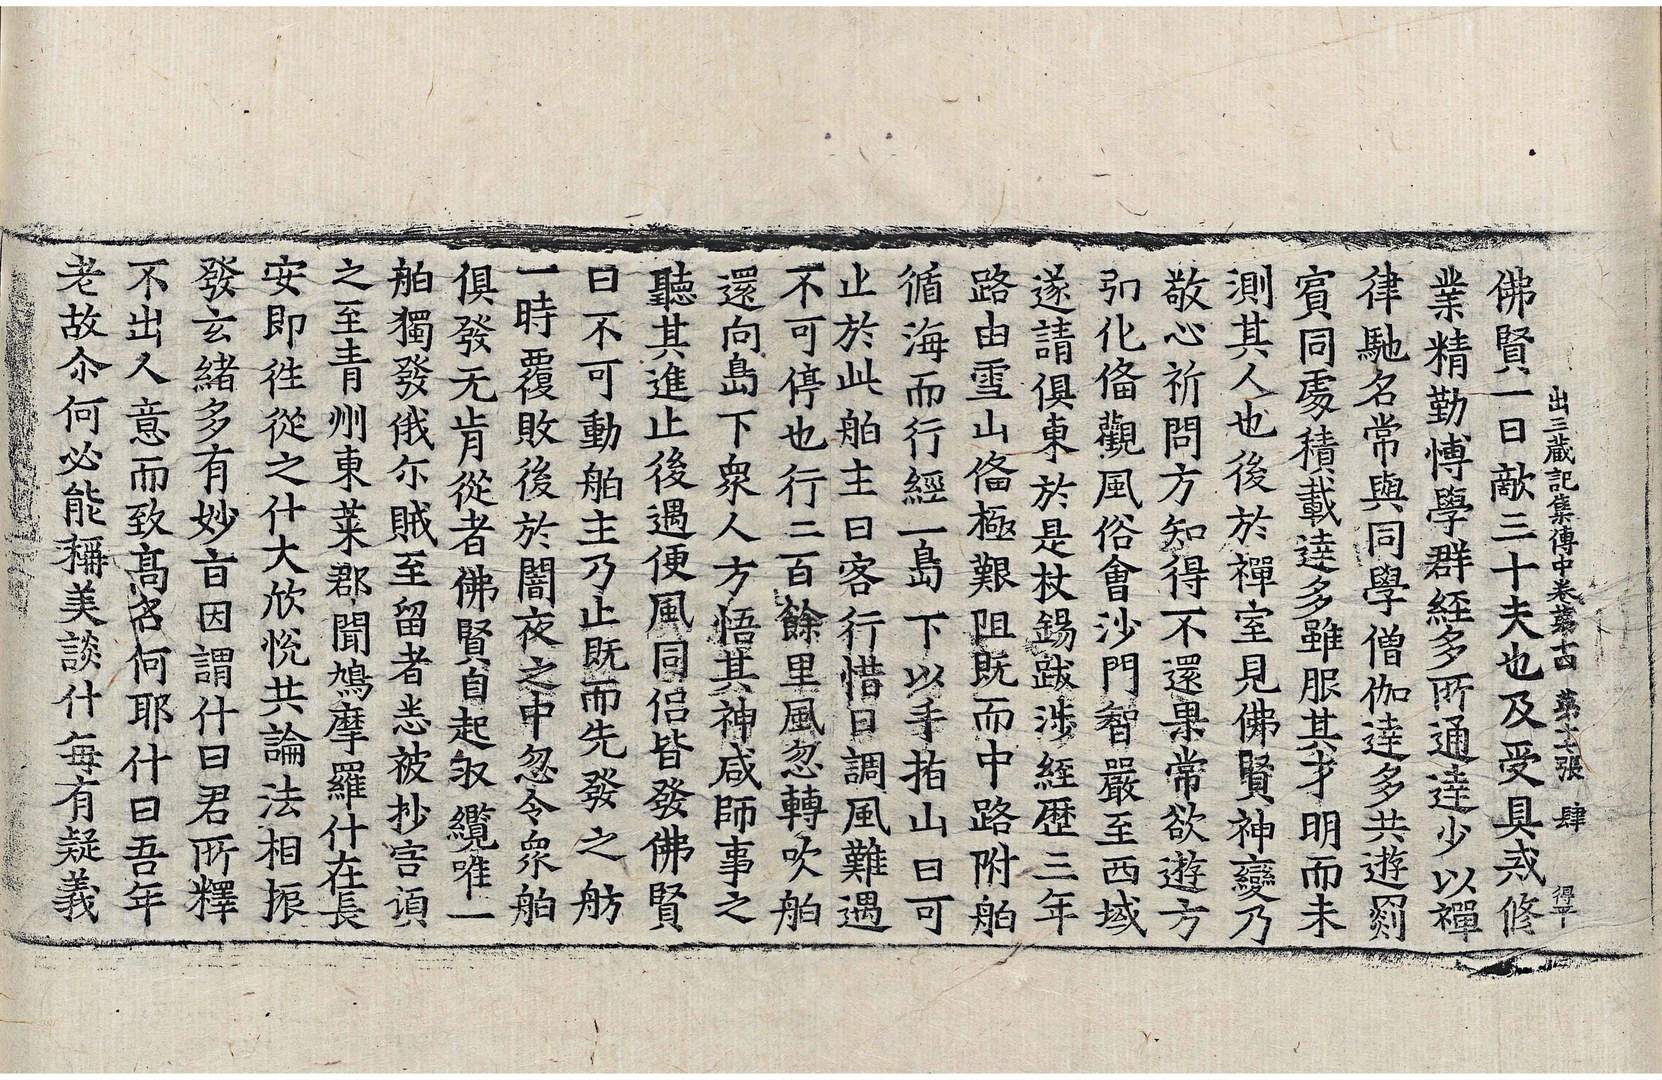 出三蔵記集傳中卷苐十四　苐七張　肆　得平
佛賢一日敵三十夫也及受具戒修
業精勤博學群經多所通達少以禪
律馳名常與同學僧伽達多共遊罽
賓同處積載達多雖服其才明而未
測其人也後於禪室見佛賢神變乃
敬心祈問方知得不還果常欲遊方
弘化俻觀風俗會沙門智嚴至西域
遂請俱東於是杖錫跋涉經歷三年
路由雪山俻極艱阻既而中路附舶
循海而行經一島下以手指山曰可
止於此舶主曰客行惜日調風難遇
不可停也行二百餘里風忽轉吹舶
還向島下衆人方悟其神咸師事之
聽其進止後遇便風同侣皆發佛賢
曰不可動舶主乃止既而先發之舫
一時覆敗後於闇夜之中忽令衆舶
俱發无肯從者佛賢自起𠬧纜唯一
舶獨發俄尔賊至留者悉被抄害頃
之至青州東萊郡聞鳩摩羅什在長
安即徃從之什大欣悅共論法相振
發玄緒多有妙旨因謂什曰君所釋
不出人意而致髙名何耶什曰吾年
老故尒何必能稱美談什每有疑義